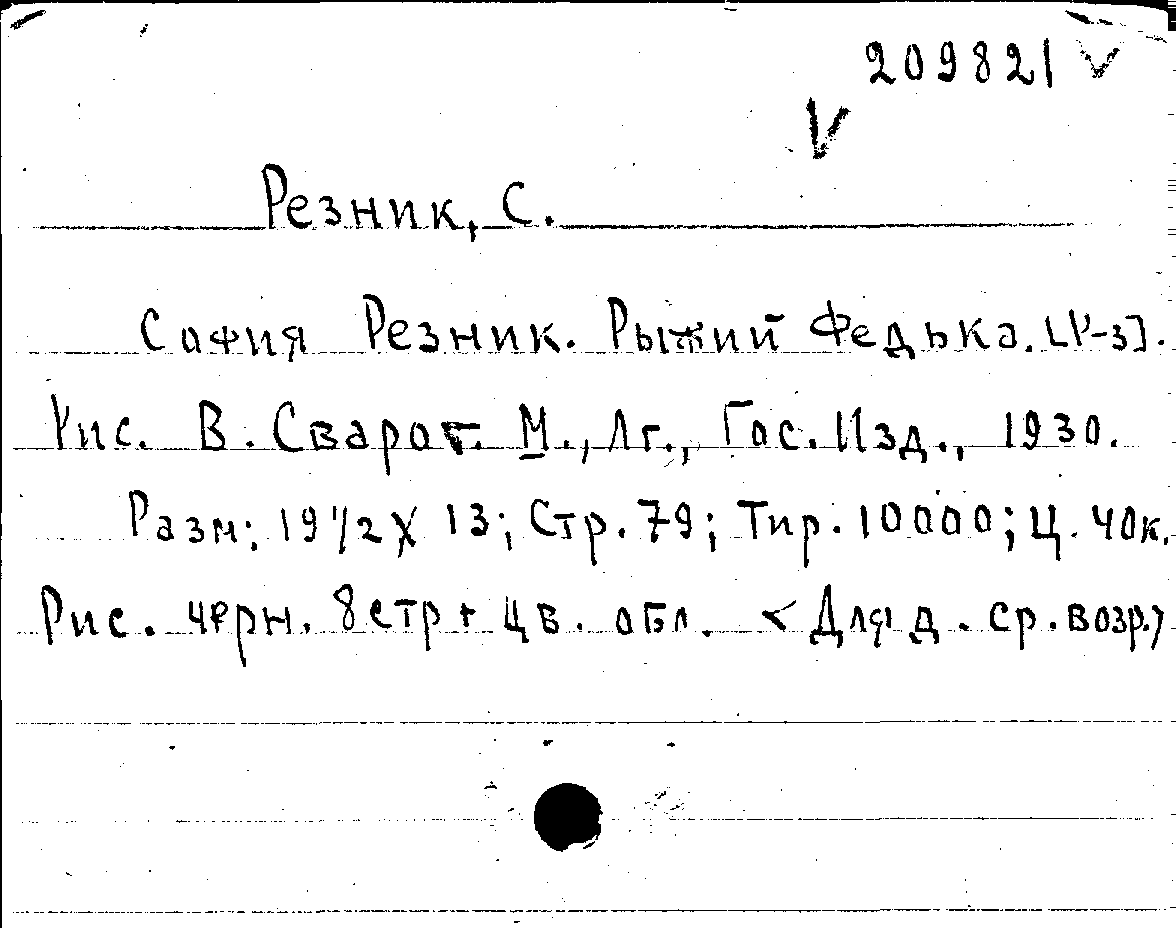 209821 V
V
Резник, С.
София Резник. Рыжий Федька. [Р-з].
Рис. В. Сварог. М., Лг., Гос. Изд., 1930.
Разм: 19 1/2 X 13; Стр. 79; Тир. 10000; Ц. 40к.
Рис. черн. 8 стр + цв. обл. <Для д. ср. возр.>